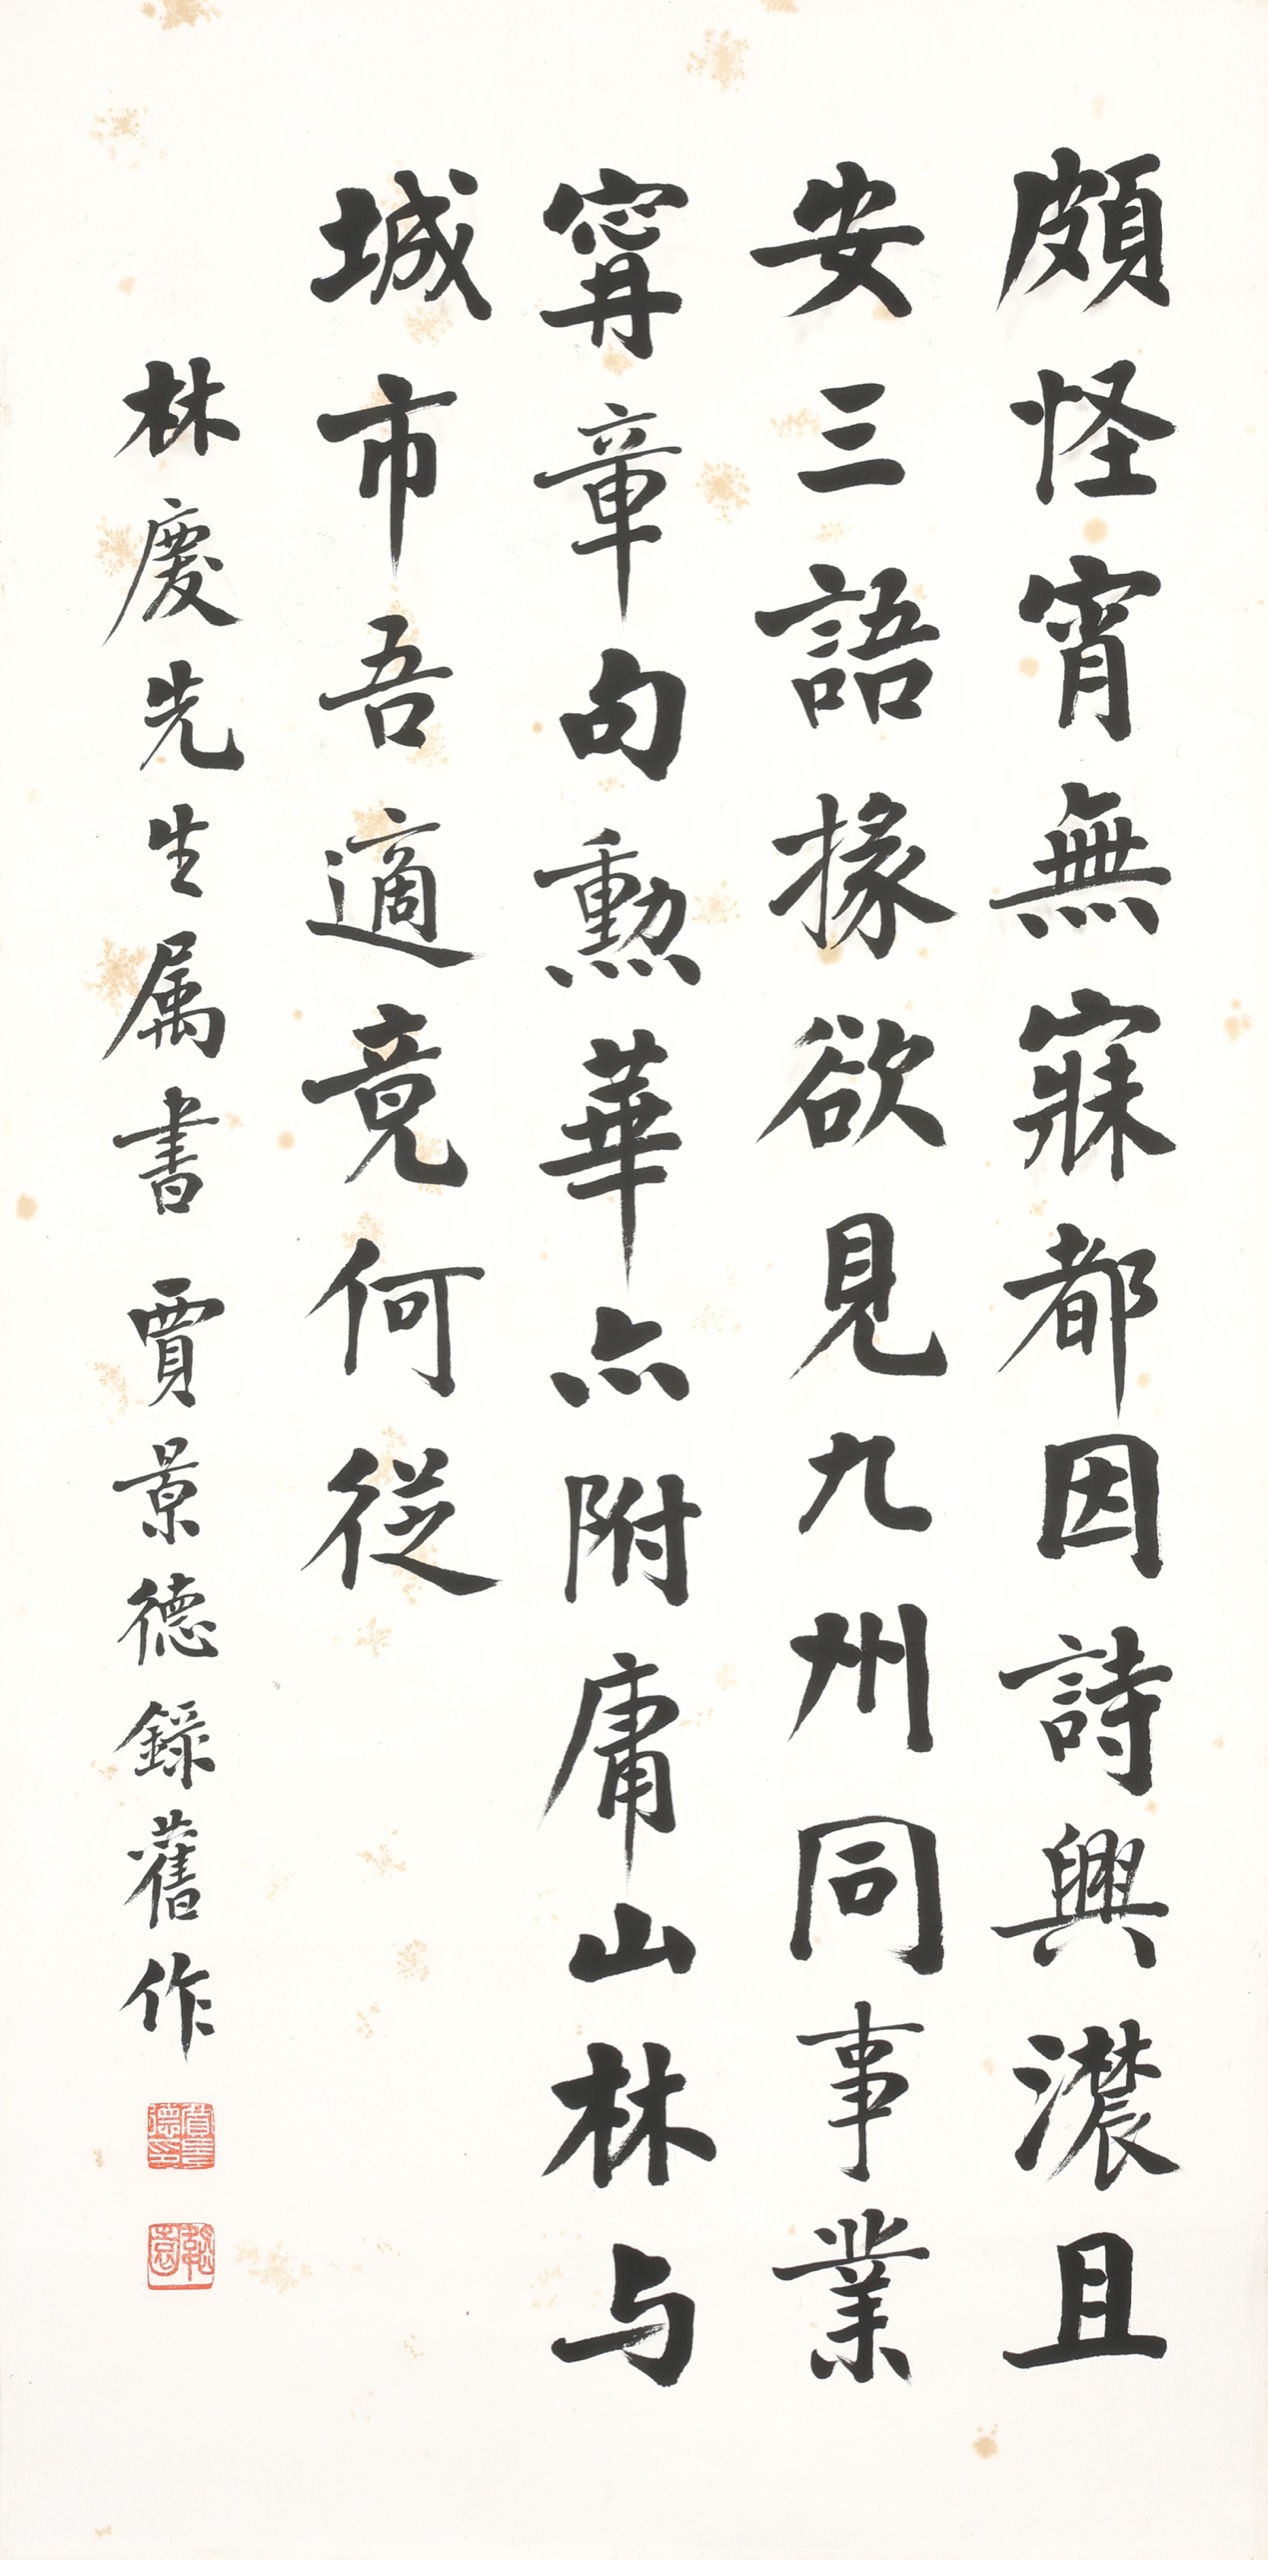 頗怪宵無寐都因詩興濃且
安三語掾欲見九州同事業
甯章句勳華亦附庸山林与
城市吾適竟何從
林慶先生属書 賈景德録舊作
賈景德印
韜園